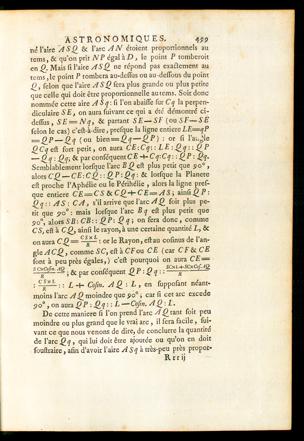 ASTRONOMIQUES. 499
né l'aire ASQ & l'arc AN étoient proportionnels au
tems, & qu'on prit NP égal à D, le point P tomberoit
en Q. Mais si l'aire ASQ ne répond pas exactement au
tems, le point P tombera au-dessus ou au-dessous du point
Q, selon que l'aire ASQ sera plus grande ou plus petite
que celle qui doit être proportionnelle au tems. Soit donc
nommée cette aire ASq: si l'on abaisse sur Cq la perpen-
diculaire SE, on aura suivant ce qui a été démontré ci-
dessus, SE=Nq, & partant SE—SF (ou SF—SE
selon le cas) c'est-à-dire, presque la ligne entiere LE=qP
=QP—Qq (ou bien=Qq—QP): or si l'angle
QCq est fort petit, on aura CE:Cq::LE:Qq::QP
—Qq:Qq; & par conséquent CE+Cq:Cq::QP:Qq.
Semblablement lorsque l'arc BQ est plus petit que 90°,
alors CQ—CE:CQ::QP:Qq: & lorsque la Planete
est proche l'Aphélie ou le Périhélie, alors la ligne pres-
que entiere CE=CS & CQ+CE=AS; ainsi QP:
Qq::AS:CA, s'il arrive que l'arc AQ soit plus pe-
tit que 90°: mais lorsque l'arc BQ est plus petit que
90°, alors SB:CB::QP:Qq; on sera donc, comme
CS, est à CQ, ainsi le rayon, à une certaine quantité L, &
on aura CQ=CS×L/R: or le Rayon, est au cosinus de l'an-
gle ACQ, comme SC, est à CF ou CE (car CF & CE
sont à peu près égales,) c'est pourquoi on aura CE=
; & par conséquent QP:Qq::
:CS×L/R::L+Cosin. AQ:L, en supposant néant-
moins l'arc AQ moindre que 90°; car si cet arc excede
90°, on aura QP:Qq::L—Cosin. AQ:L.
De cette maniere si l'on prend l'arc AQ tant soit peu
moindre ou plus grand que le vrai arc, il sera facile, sui-
vant ce que nous venons de dire, de conclurre la quantité
de l'arc Qq, qui lui doit être ajoutée ou qu'on en doit
soustraire, afin d'avoir l'aire ASq à très-peu près propor-
Rrrij